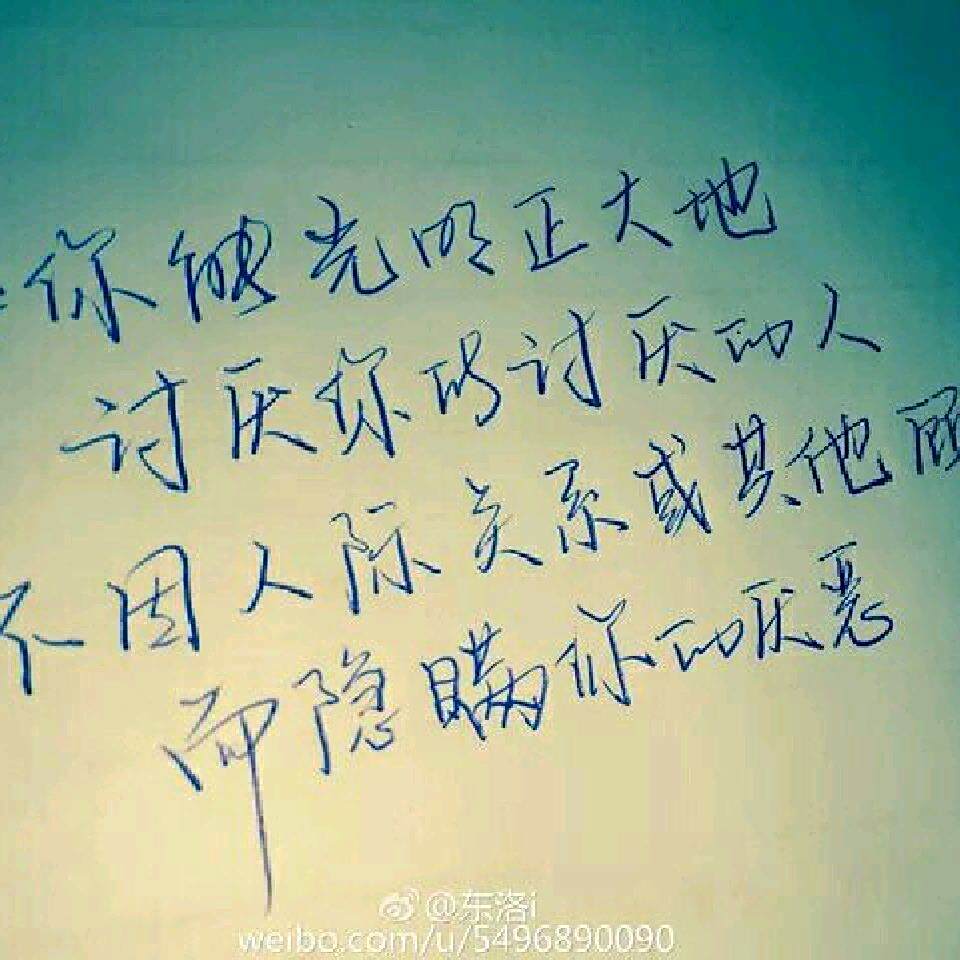 你能光明正大地
讨厌你所讨厌的人
不因人际关系或其他
而隐瞒你的厌恶
@东洛i
weibo.com/u/5496890090